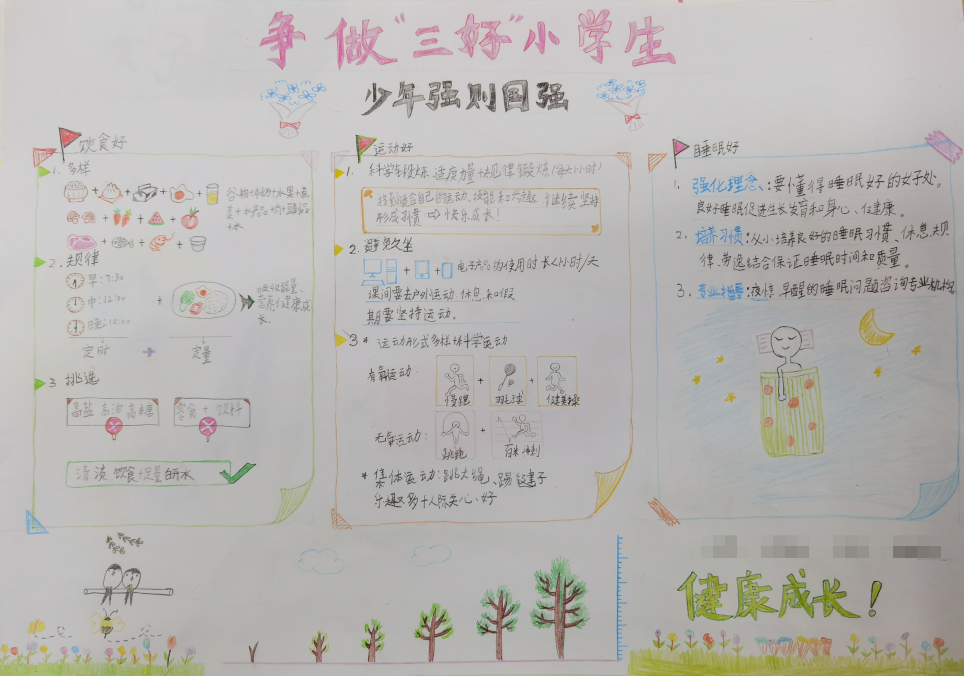 争做“三好”小学生
少年强则国强
饮食好
1. 多样
谷物+
2. 规律
早:7:30
中:12:00
晚:18:00
定时 + 定量
3 挑选
高盐 高油 高糖
零食 + 饮料
清淡饮食+足量的水
运动好
1. 科学锻炼:适度量+规律锻炼
找到适合自己的运动、技能和兴趣、并持续坚持
形成习惯 快乐成长!
2. 避免久坐
电子产品的使用时长<1小时/天
课间要去户外运动、休息和假
期要坚持运动。
3* 运动形式多样+科学运动
有氧运动:
慢跑 + 羽毛球 + 健美操
无氧运动:
跳绳 + 百米冲刺
* 集体运动:跳大绳、踢毽子
乐趣多+人际关心 好
睡眠好
1. 强化理念:要懂得睡眠好的好处。
良好睡眠促进生长发育和身心健康。
2. 培养习惯:从小培养良好的睡眠习惯、休息规
律,劳逸结合保证睡眠时间和质量。
3. 专业指导:夜惊、早醒的睡眠问题当询专业机构
健康成长!